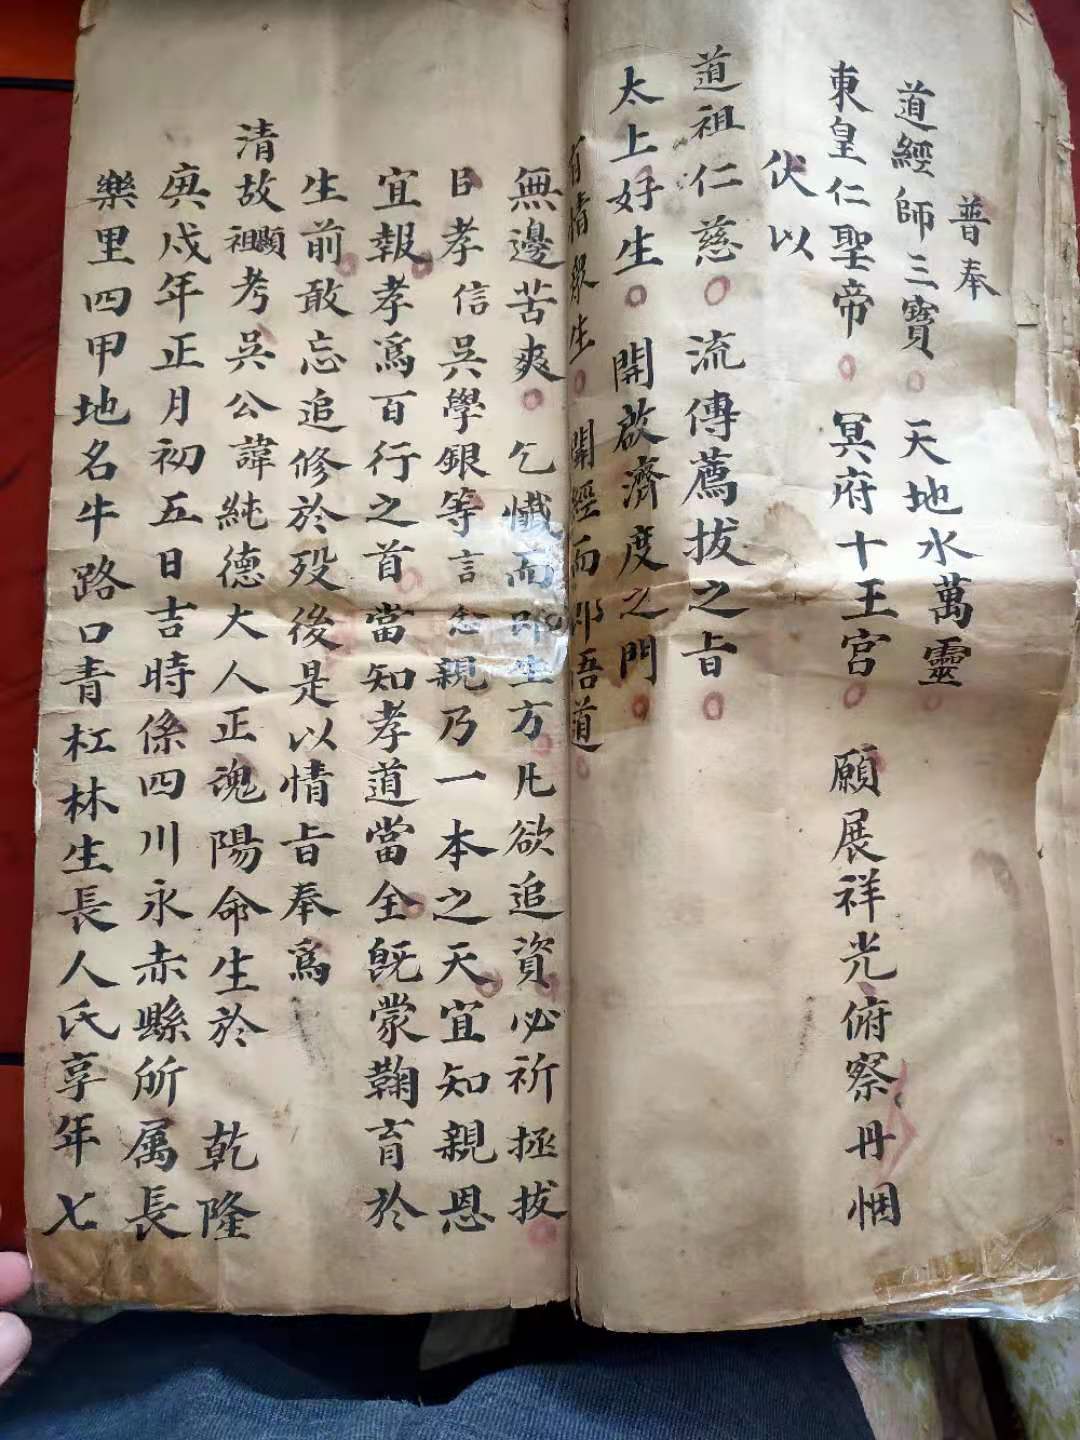 普奉
道經師三寶 天地水萬靈
東皇仁聖帝 冥府十王宮 願展祥光俯察丹悃
伏以
道祖仁慈 流傳薦拔之旨
太上好生 開啟濟度之門
生 開經而 悟道
無邊苦爽 乞懺而 生方凡欲追資必祈拯拔
孝信吳學銀等言念親乃一本之天宜知親恩
宜報孝爲百行之首當知孝道當全既蒙鞠育於
生前敢忘追修於歿後是以情旨奉爲
清故顯祖考吳公諱純德大人正魂陽命生於 乾隆
庚戌年正月初五日吉時係四川永赤縣所屬長
樂里四甲地名牛路口青杠林生長人氏享年七